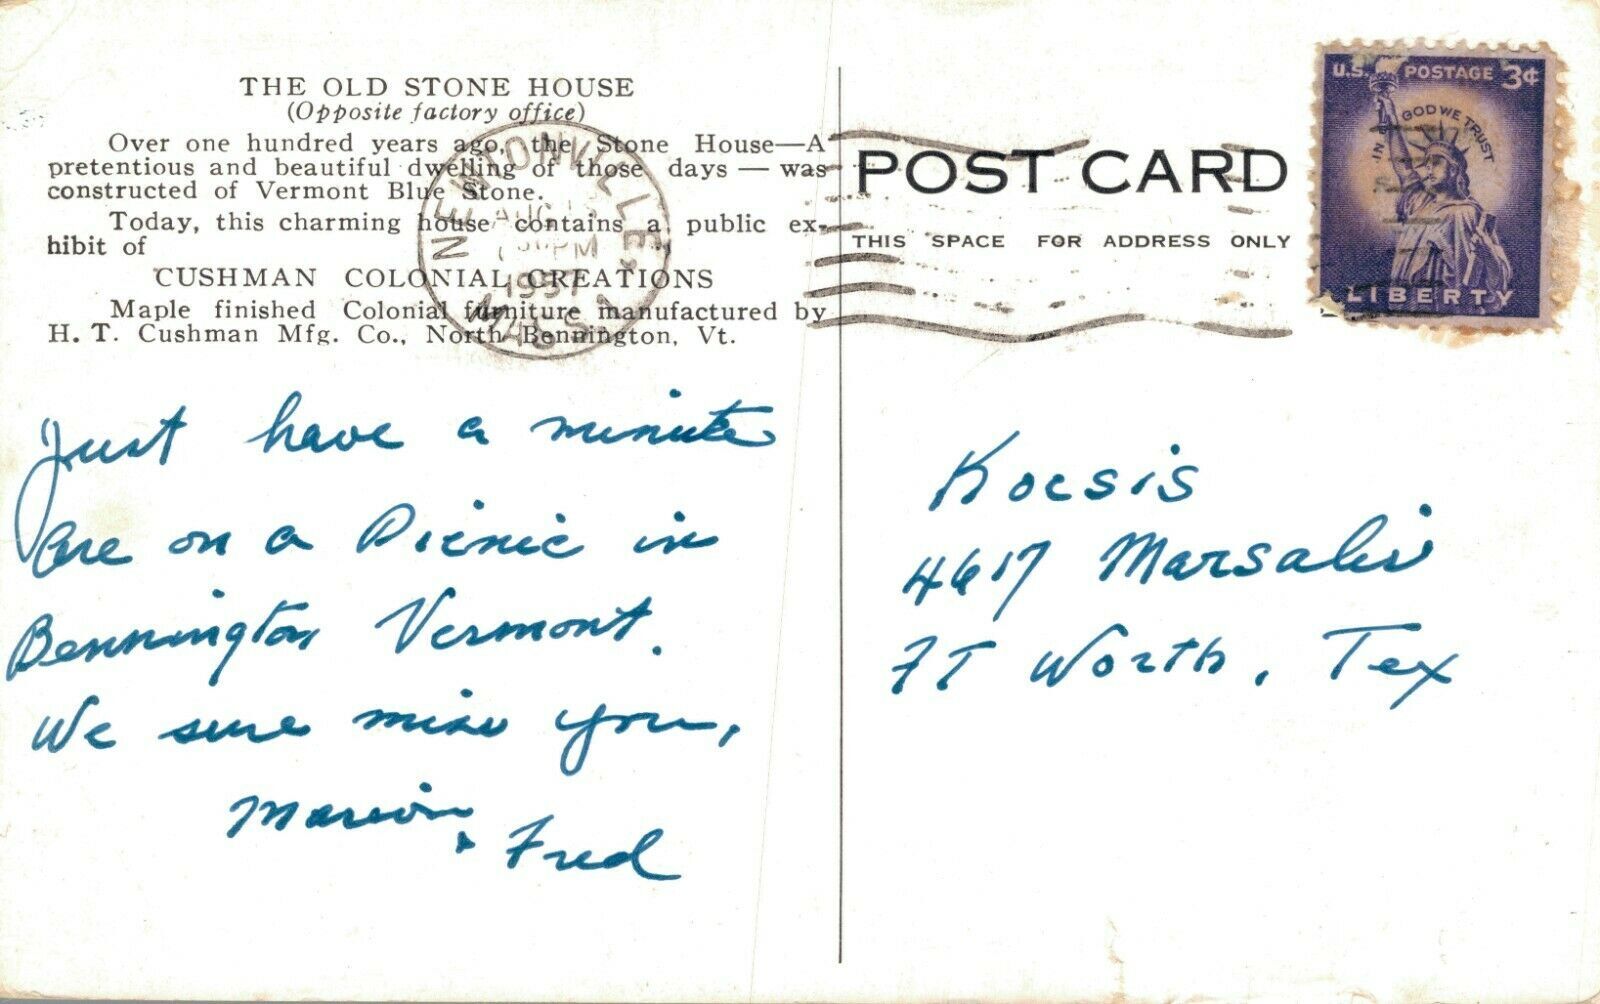 THE OLD STONE HOUSE
(Opposite factory office)
Over one hundred years ago, the Stone House—A
pretentious and beautiful dwelling of those days — was
constructed of Vermont Blue Stone.
Today, this charming house contains a public ex-
hibit of
CUSHMAN COLONIAL CREATIONS
Maple finished Colonial furniture manufactured by
H. T. Cushman Mfg. Co., North Bennington, Vt.
NEWTONVILLE,
AUG
PM
1957
MASS.
POST CARD
THIS SPACE FOR ADDRESS ONLY
U.S. POSTAGE 3¢
IN GOD WE TRUST
LIBERTY
Just have a minute
Are on a Picnic in
Bennington Vermont.
We sure miss you,
Marion
& Fred
Kocsis
4617 Marsalis
FT Worth, Tex